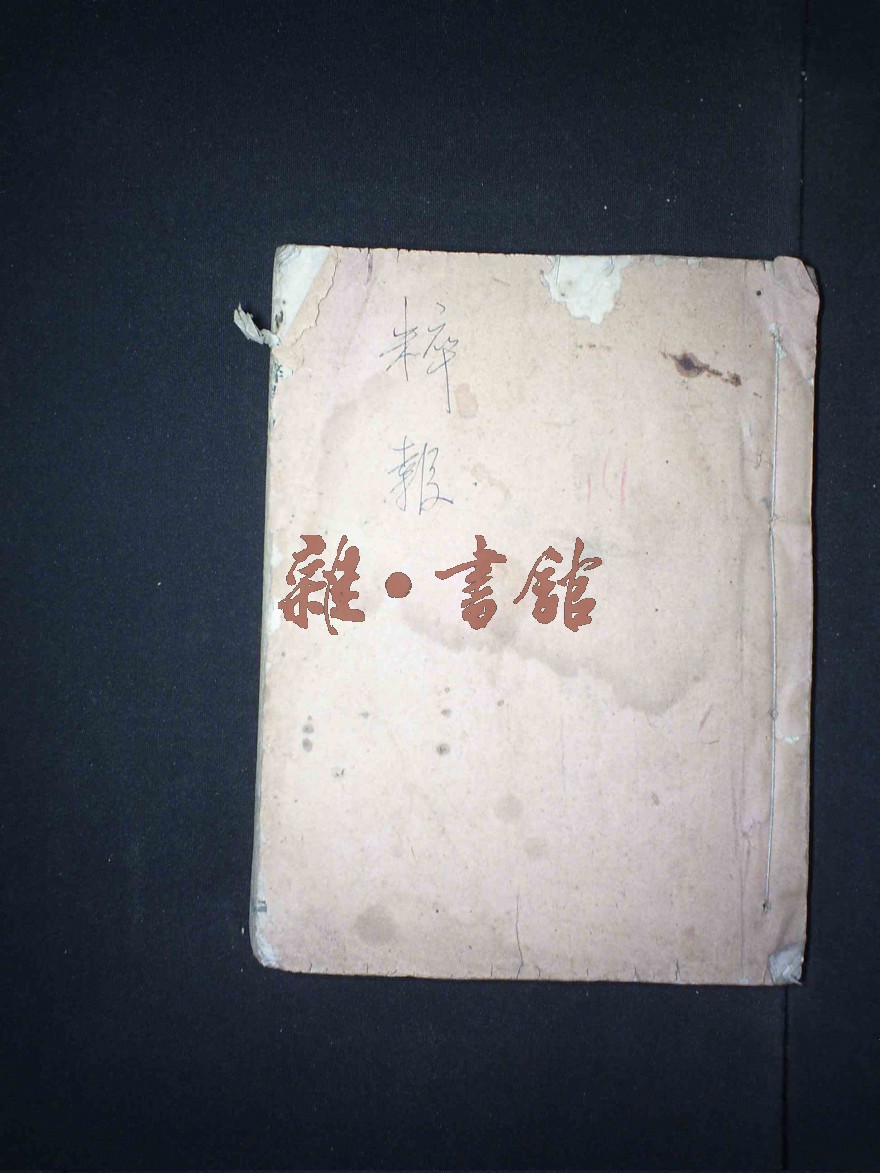 粹
報
雜·書館